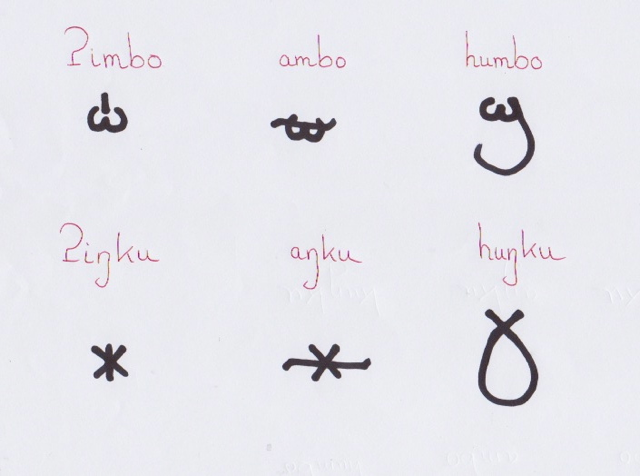 ʔimbo ambo humbo
ʔiŋku aŋku huŋku